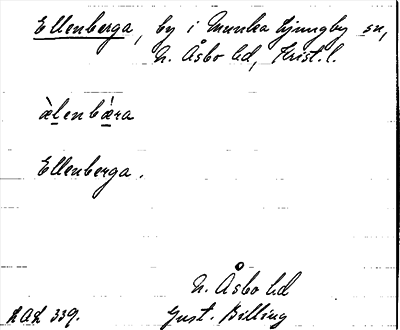 Ellenberga, by i Munka Ljungby sn,
N. Åsbo hd, Krist. l.
àlenbæ̀ra
Ellenberga.
N. Åsbo hd
RAÄ 339. Gust. Billing